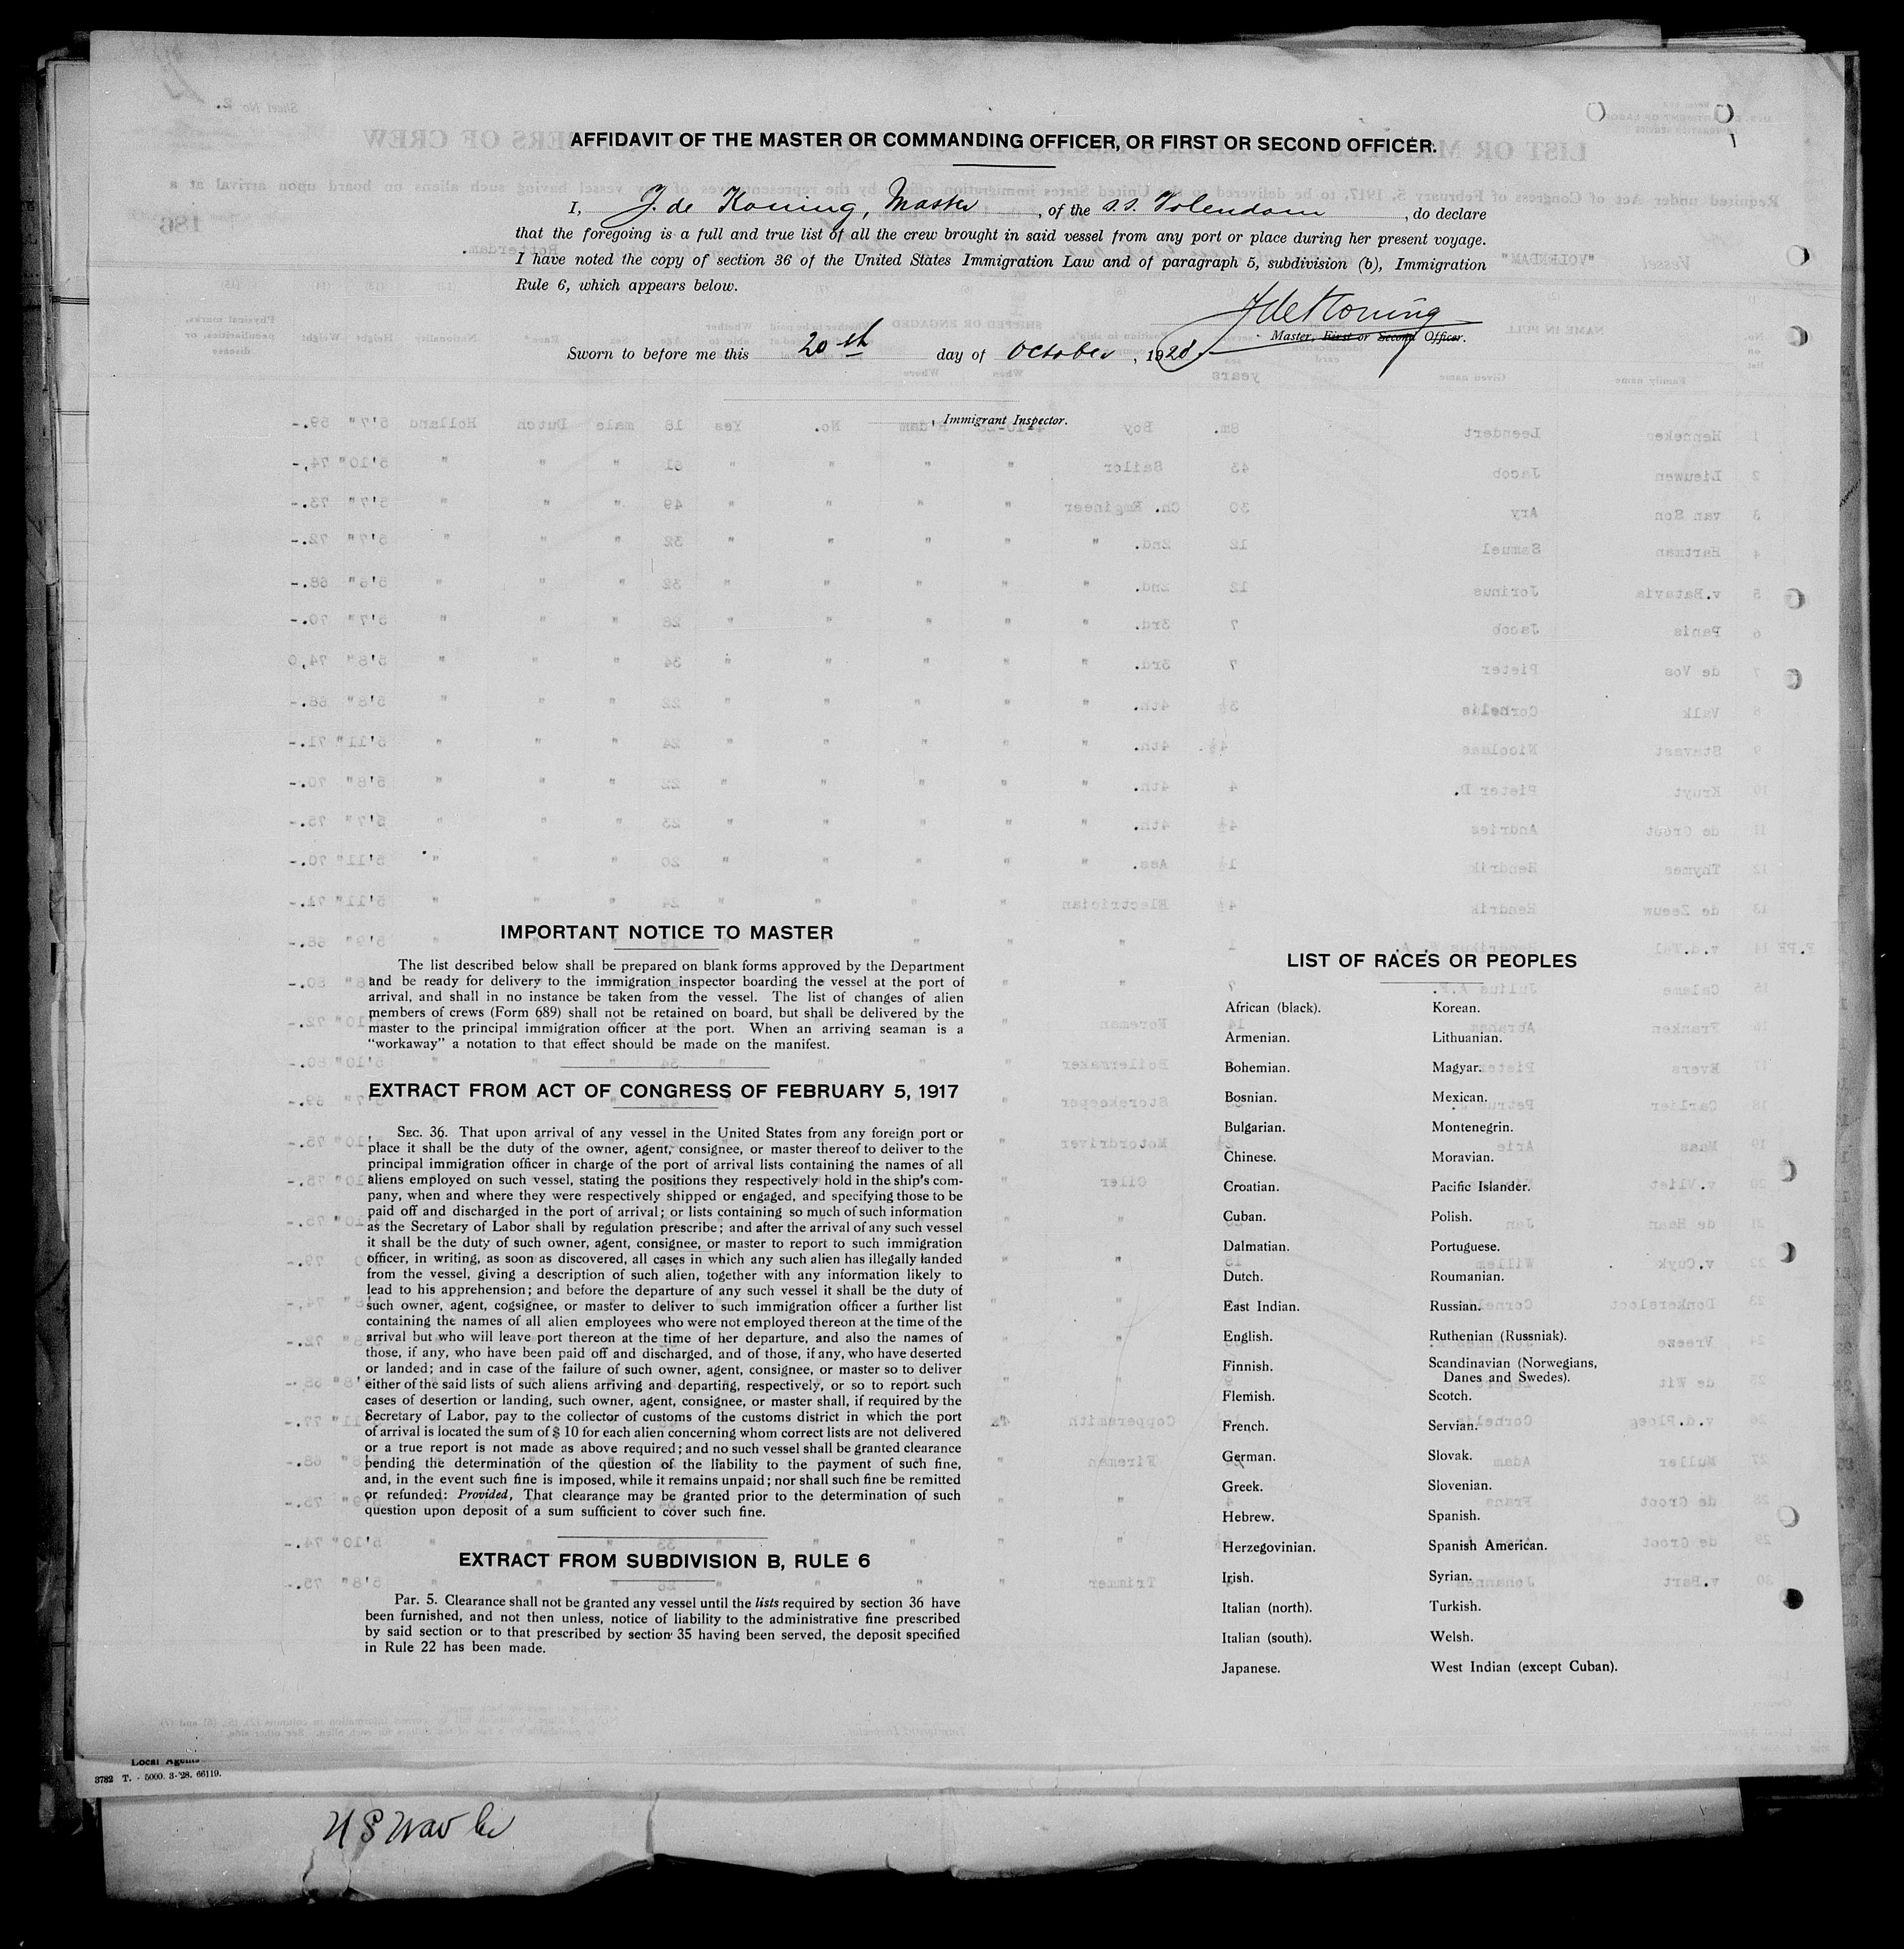 AFFIDAVIT OF THE MASTER OR COMMANDING OFFICER, OR FIRST OR SECOND OFFICER.
I, J. de Koning, Master, of the s.s. Volendam, do declare
that the foregoing is a full and true list of all the crew brought in said vessel from any port or place during her present voyage.
I have noted the copy of section 36 of the United States Immigration Law and of paragraph 5, subdivision (b), Immigration
Rule 6, which appears below.
J de Koning
Master, First or Second Officer.
Sworn to before me this 20th day of October, 1928
, Immigrant Inspector.
IMPORTANT NOTICE TO MASTER
The list described below shall be prepared on blank forms approved by the Department
and be ready for delivery to the immigration inspector boarding the vessel at the port of
arrival, and shall in no instance be taken from the vessel. The list of changes of alien
members of crews (Form 689) shall not be retained on board, but shall be delivered by the
master to the principal immigration officer at the port. When an arriving seaman is a
“workaway” a notation to that effect should be made on the manifest.
EXTRACT FROM ACT OF CONGRESS OF FEBRUARY 5, 1917
SEC. 36. That upon arrival of any vessel in the United States from any foreign port or
place it shall be the duty of the owner, agent, consignee, or master thereof to deliver to the
principal immigration officer in charge of the port of arrival lists containing the names of all
aliens employed on such vessel, stating the positions they respectively hold in the ship's com-
pany, when and where they were respectively shipped or engaged, and specifying those to be
paid off and discharged in the port of arrival; or lists containing so much of such information
as the Secretary of Labor shall by regulation prescribe; and after the arrival of any such vessel
it shall be the duty of such owner, agent, consignee, or master to report to such immigration
officer, in writing, as soon as discovered, all cases in which any such alien has illegally landed
from the vessel, giving a description of such alien, together with any information likely to
lead to his apprehension; and before the departure of any such vessel it shall be the duty of
such owner, agent, cogsignee, or master to deliver to such immigration officer a further list
containing the names of all alien employees who were not employed thereon at the time of the
arrival but who will leave port thereon at the time of her departure, and also the names of
those, if any, who have been paid off and discharged, and of those, if any, who have deserted
or landed; and in case of the failure of such owner, agent, consignee, or master so to deliver
either of the said lists of such aliens arriving and departing, respectively, or so to report such
cases of desertion or landing, such owner, agent, consignee, or master shall, if required by the
Secretary of Labor, pay to the collector of customs of the customs district in which the port
of arrival is located the sum of $ 10 for each alien concerning whom correct lists are not delivered
or a true report is not made as above required; and no such vessel shall be granted clearance
pending the determination of the question of the liability to the payment of such fine,
and, in the event such fine is imposed, while it remains unpaid; nor shall such fine be remitted
or refunded: Provided, That clearance may be granted prior to the determination of such
question upon deposit of a sum sufficient to cover such fine.
EXTRACT FROM SUBDIVISION B, RULE 6
Par. 5. Clearance shall not be granted any vessel until the lists required by section 36 have
been furnished, and not then unless, notice of liability to the administrative fine prescribed
by said section or to that prescribed by section 35 having been served, the deposit specified
in Rule 22 has been made.
LIST OF RACES OR PEOPLES
African (black).
Armenian.
Bohemian.
Bosnian.
Bulgarian.
Chinese.
Croatian.
Cuban.
Dalmatian.
Dutch.
East Indian.
English.
Finnish.
Flemish.
French.
German.
Greek.
Hebrew.
Herzegovinian.
Irish.
Italian (north).
Italian (south).
Japanese.
Korean.
Lithuanian.
Magyar.
Mexican.
Montenegrin.
Moravian.
Pacific Islander.
Polish.
Portuguese.
Roumanian.
Russian.
Ruthenian (Russniak).
Scandinavian (Norwegians,
Danes and Swedes).
Scotch.
Servian.
Slovak.
Slovenian.
Spanish.
Spanish American.
Syrian.
Turkish.
Welsh.
West Indian (except Cuban).
Local Agents
3782 T. - 5000. 3-'28. 66119.